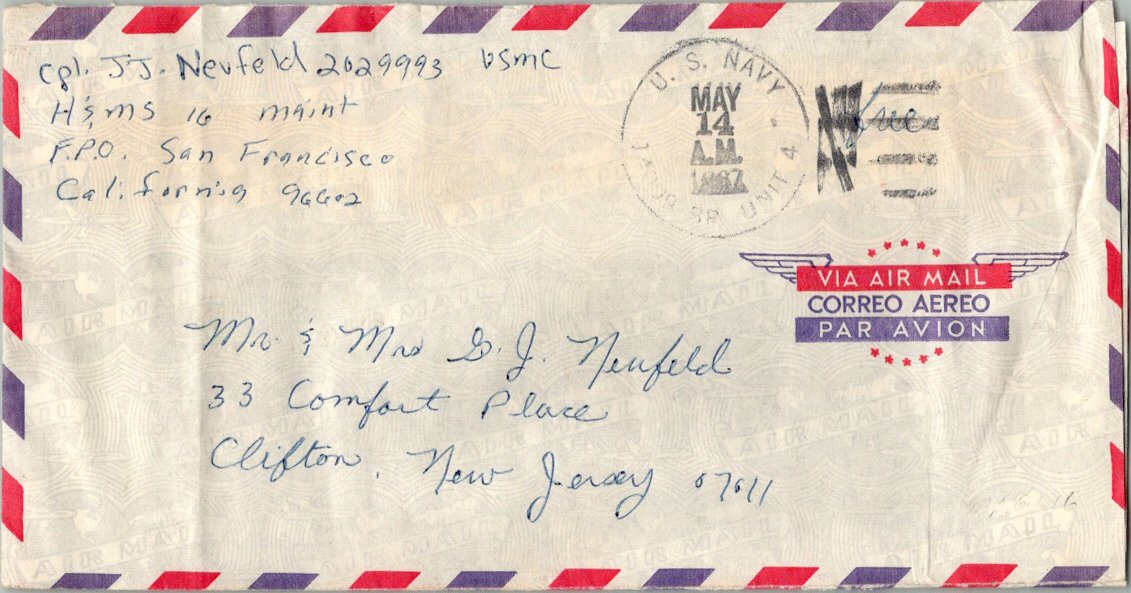 Cpl. J.J. Neufeld 2029993 USMC
H & MS 16 maint
F.P.O. San Francisco
California 96602
U. S. NAVY
MAY
14
A.M.
1967
BR. UNIT 4
Free
VIA AIR MAIL
CORREO AEREO
PAR AVION
Mr. & Mrs G. J. Neufeld
33 Comfort Place
Clifton, New Jersey 07011